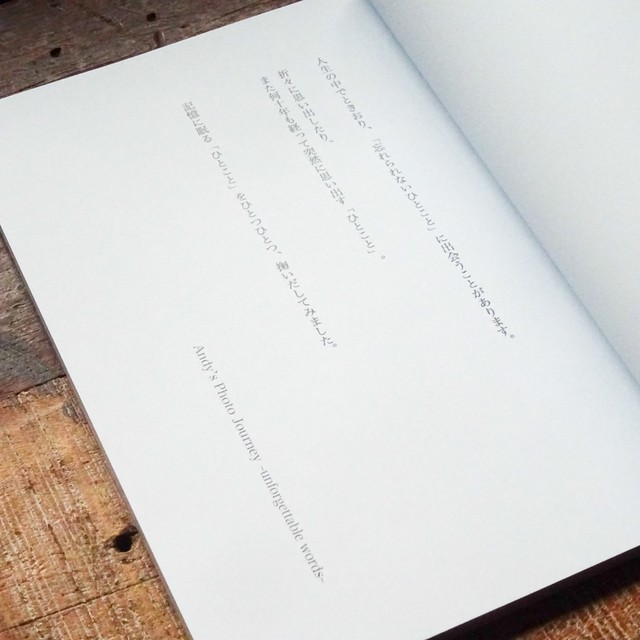 人生の中でときおり、「忘れられないひとこと」に出会うことがあります。
折々に思い出したり、
また何年も経って突然に思い出す「ひとこと」。
記憶に眠る「ひとこと」をひとつひとつ、掬いだしてみました。
Andy's Photo Journey -unforgettable words-